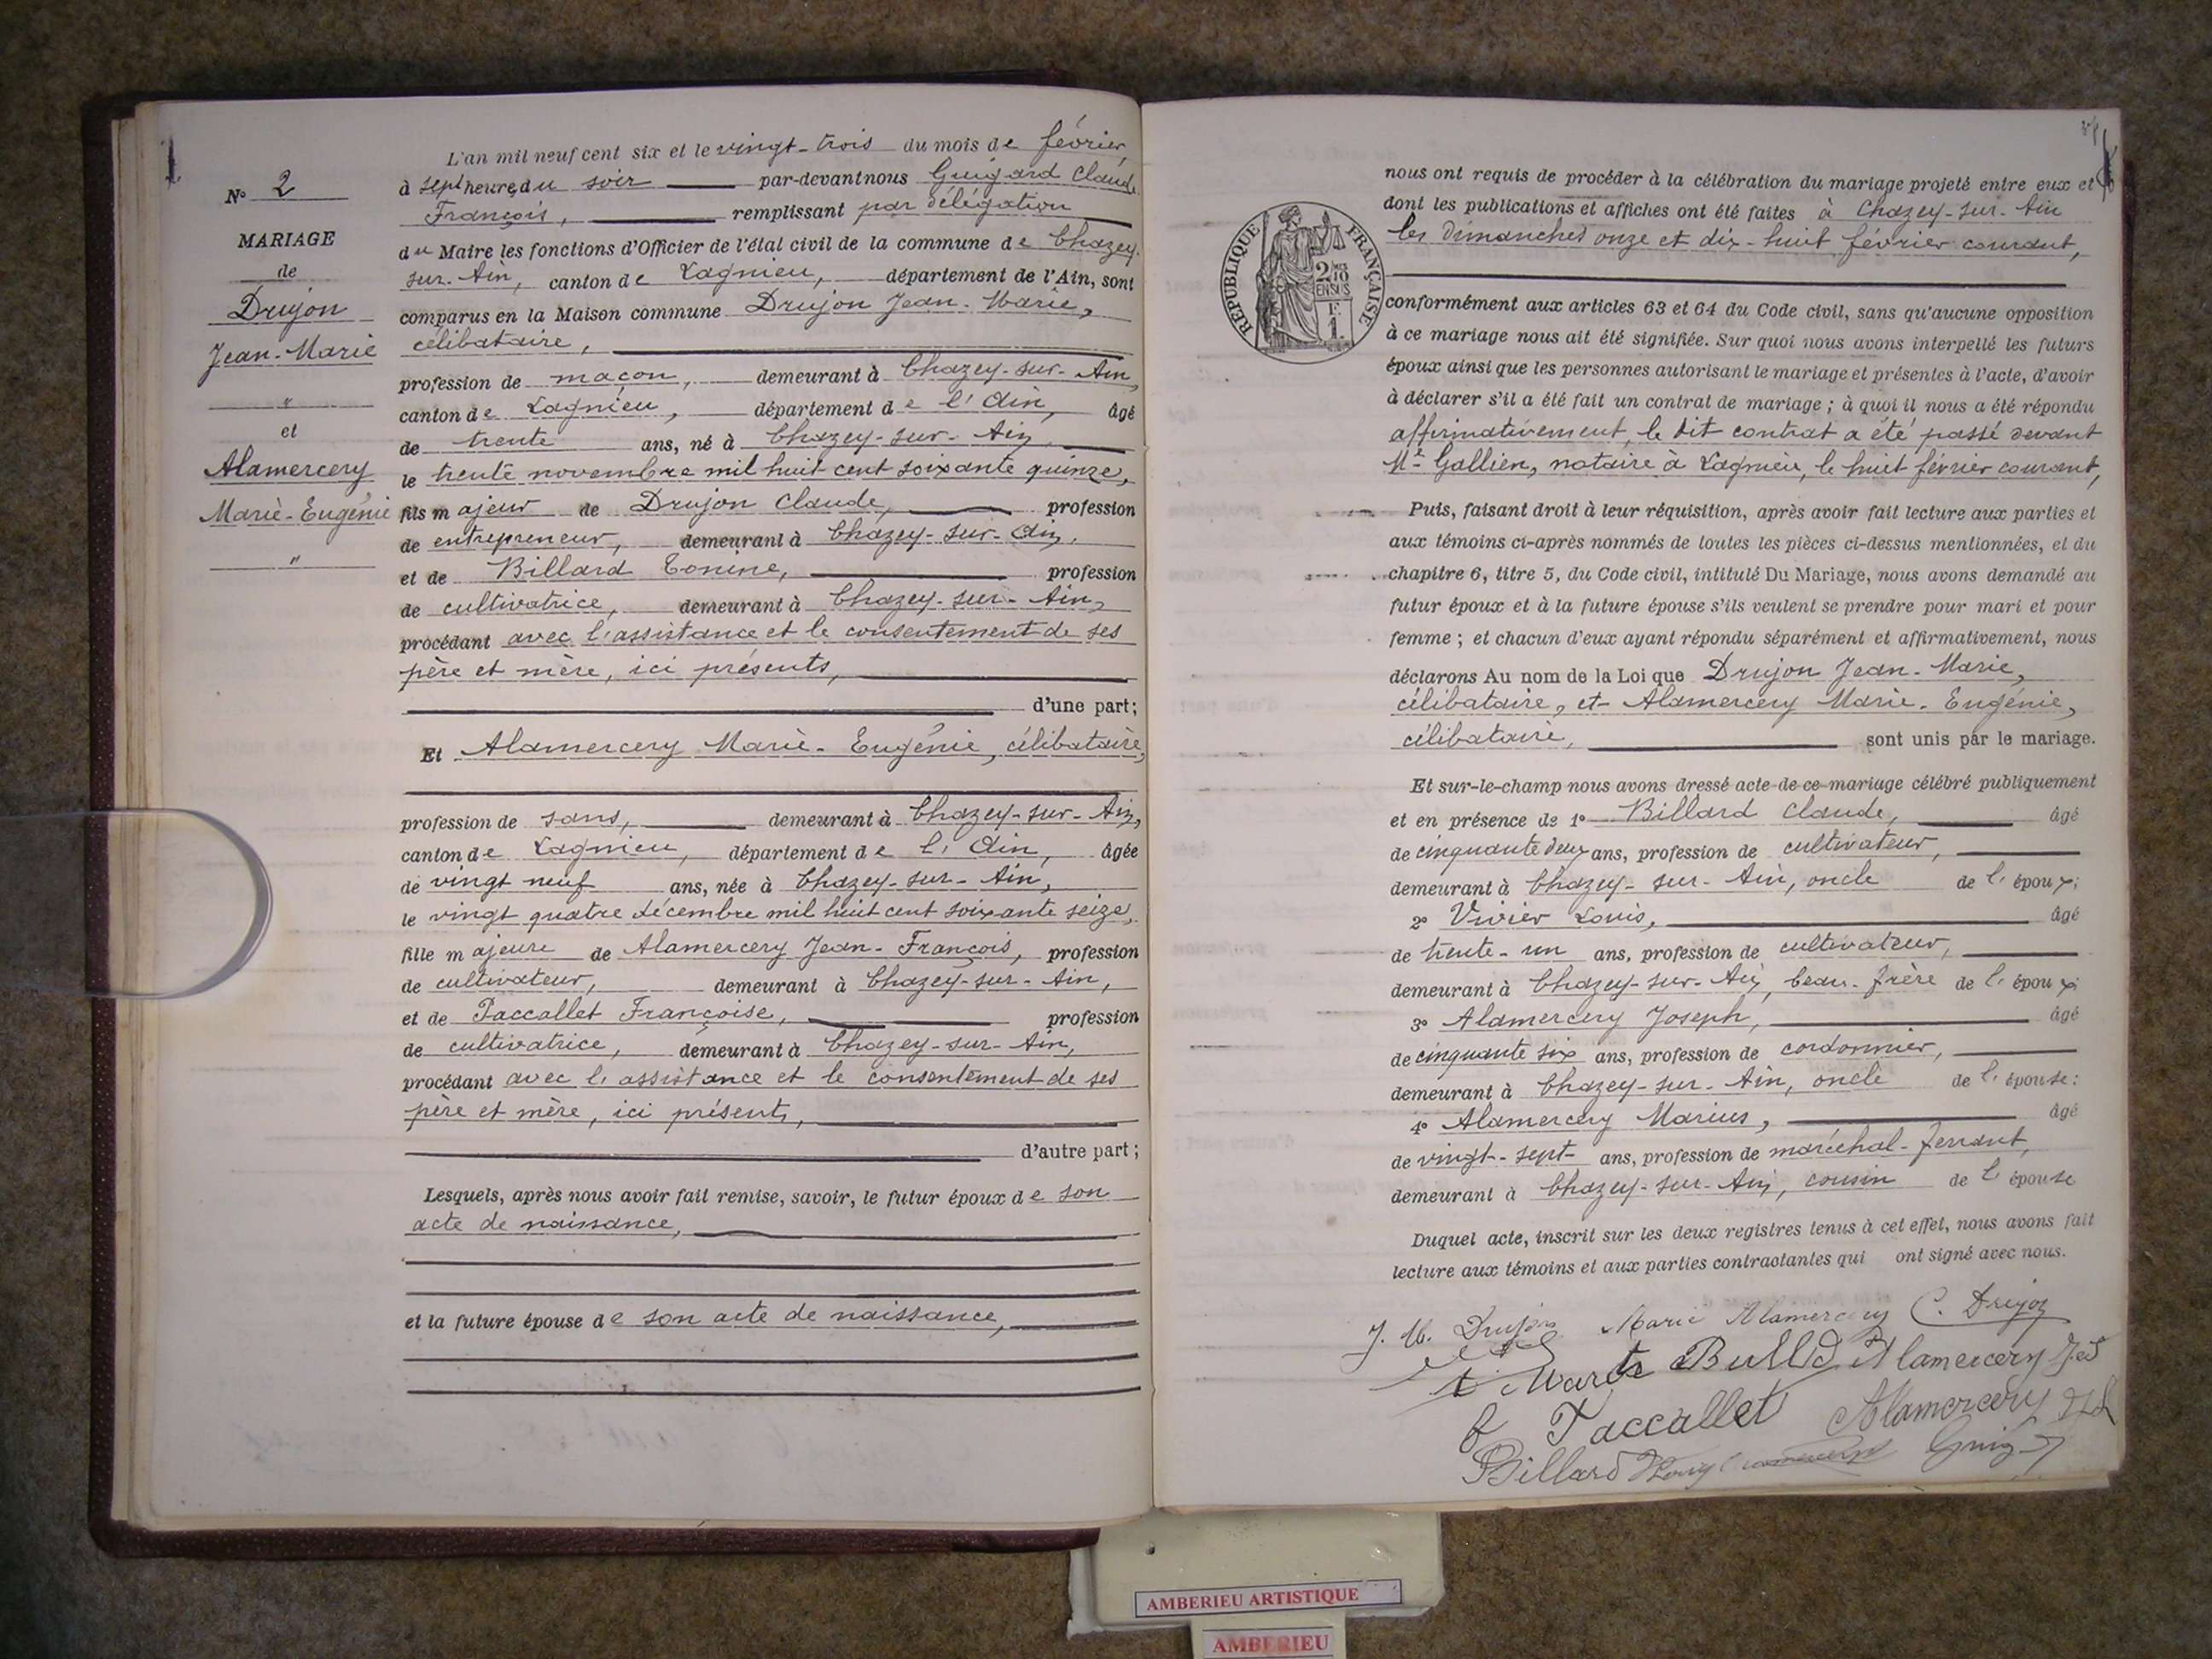 N° 2
MARIAGE
de
Drujon
Jean-Marie
"
et
Alamercery
Marie-Eugénie
"
L'an mil neuf cent six et le vingt-trois du mois de février,
à sept heures du soir par-devant nous Guigard Claude
François, remplissant par délégation
du Maire les fonctions d'Officier de l'état civil de la commune de Chazey-
sur-Ain, canton de Lagnieu, département de l'Ain, sont
comparus en la Maison commune Drujon Jean-Marie,
célibataire,
profession de maçon, demeurant à Chazey-sur-Ain,
canton de Lagnieu, département de l'Ain, âgé
de trente ans, né à Chazey-sur-Ain,
le trente novembre mil huit cent soixante quinze,
fils majeur de Drujon Claude, profession
de entrepreneur, demeurant à Chazey-sur-Ain,
et de Billard Tonine, profession
de cultivatrice, demeurant à Chazey-sur-Ain,
procédant avec l'assistance et le consentement de ses
père et mère, ici présents,
d'une part;
Et Alamercery Marie-Eugénie, célibataire,
profession de sans, demeurant à Chazey-sur-Ain,
canton de Lagnieu, département de l'Ain, âgée
de vingt neuf ans, née à Chazey-sur-Ain,
le vingt quatre décembre mil huit cent soixante seize,
fille majeure de Alamercery Jean-François, profession
de cultivateur, demeurant à Chazey-sur-Ain,
et de Paccallet Françoise, profession
de cultivatrice, demeurant à Chazey-sur-Ain,
procédant avec l'assistance et le consentement de ses
père et mère, ici présents,
d'autre part;
Lesquels, après nous avoir fait remise, savoir, le futur époux de son
acte de naissance,
et la future épouse de son acte de naissance,
RÉPUBLIQUE FRANÇAISE
2/10
EN SUS
F.
1.
nous ont requis de procéder à la célébration du mariage projeté entre eux et
dont les publications et affiches ont été faites à Chazey-sur-Ain
les dimanches onze et dix-huit février courant,
conformément aux articles 63 et 64 du Code civil, sans qu'aucune opposition
à ce mariage nous ait été signifiée. Sur quoi nous avons interpellé les futurs
époux ainsi que les personnes autorisant le mariage et présentes à l'acte, d'avoir
à déclarer s'il a été fait un contrat de mariage; à quoi il nous a été répondu
affirmativement, le dit contrat a été passé devant
Me Gallien, notaire à Lagnieu, le huit février courant,
Puis, faisant droit à leur réquisition, après avoir fait lecture aux parties et
aux témoins ci-après nommés de toutes les pièces ci-dessus mentionnées, et du
chapitre 6, titre 5, du Code civil, intitulé Du Mariage, nous avons demandé au
futur époux et à la future épouse s'ils veulent se prendre pour mari et pour
femme; et chacun d'eux ayant répondu séparément et affirmativement, nous
déclarons Au nom de la Loi que Drujon Jean-Marie,
célibataire, et Alamercery Marie-Eugénie,
célibataire, sont unis par le mariage.
Et sur-le-champ nous avons dressé acte de ce mariage célébré publiquement
et en présence de 1° Billard Claude, âgé
de cinquante deux ans, profession de cultivateur,
demeurant à Chazey-sur-Ain, oncle de l'époux;
2° Vivier Louis, âgé
de trente-un ans, profession de cultivateur,
demeurant à Chazey-sur-Ain, beau-frère de l'époux;
3° Alamercery Joseph, âgé
de cinquante six ans, profession de cordonnier,
demeurant à Chazey-sur-Ain, oncle de l'épouse;
4° Alamercery Marius, âgé
de vingt-sept ans, profession de maréchal-ferrant,
demeurant à Chazey-sur-Ain, cousin de l'épouse
Duquel acte, inscrit sur les deux registres tenus à cet effet, nous avons fait
lecture aux témoins et aux parties contractantes qui ont signé avec nous.
J. M. Drujon Marie Alamercery C. Drujon
Alamercery
f Paccallet Alamercery
Billard
AMBERIEU ARTISTIQUE
AMBERIEU